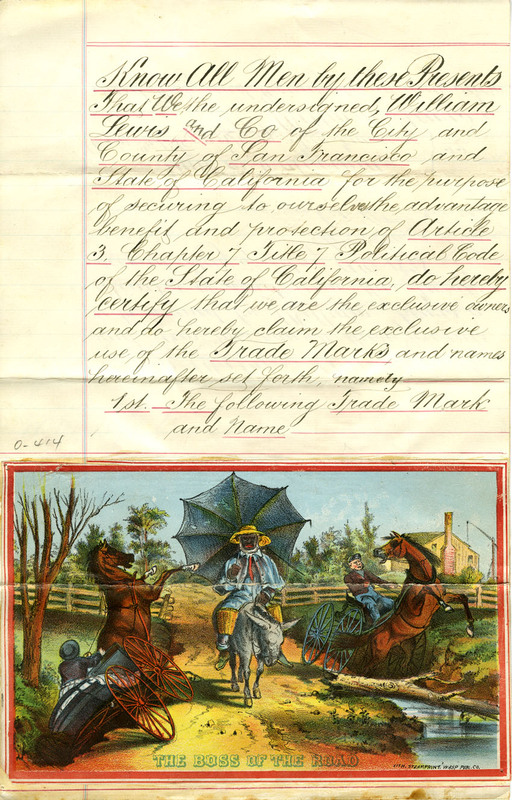 Know All Men by these Presents
That We the undersigned, William
Lewis and Co of the City and
County of San Francisco and
State of California for the purpose
of securing to ourselves the advantage
benefit and protection of Article
3. Chapter 7 Title 7 Political Code
of the State of California, do hereby
certify that we are the exclusive owners
and do hereby claim the exclusive
use of the Trade Marks and names
hereinafter set forth, namely
1st. The following Trade Mark
and Name
0-414
THE BOSS OF THE ROAD
LITH. STEAM PRINT. WASP PUB. CO.